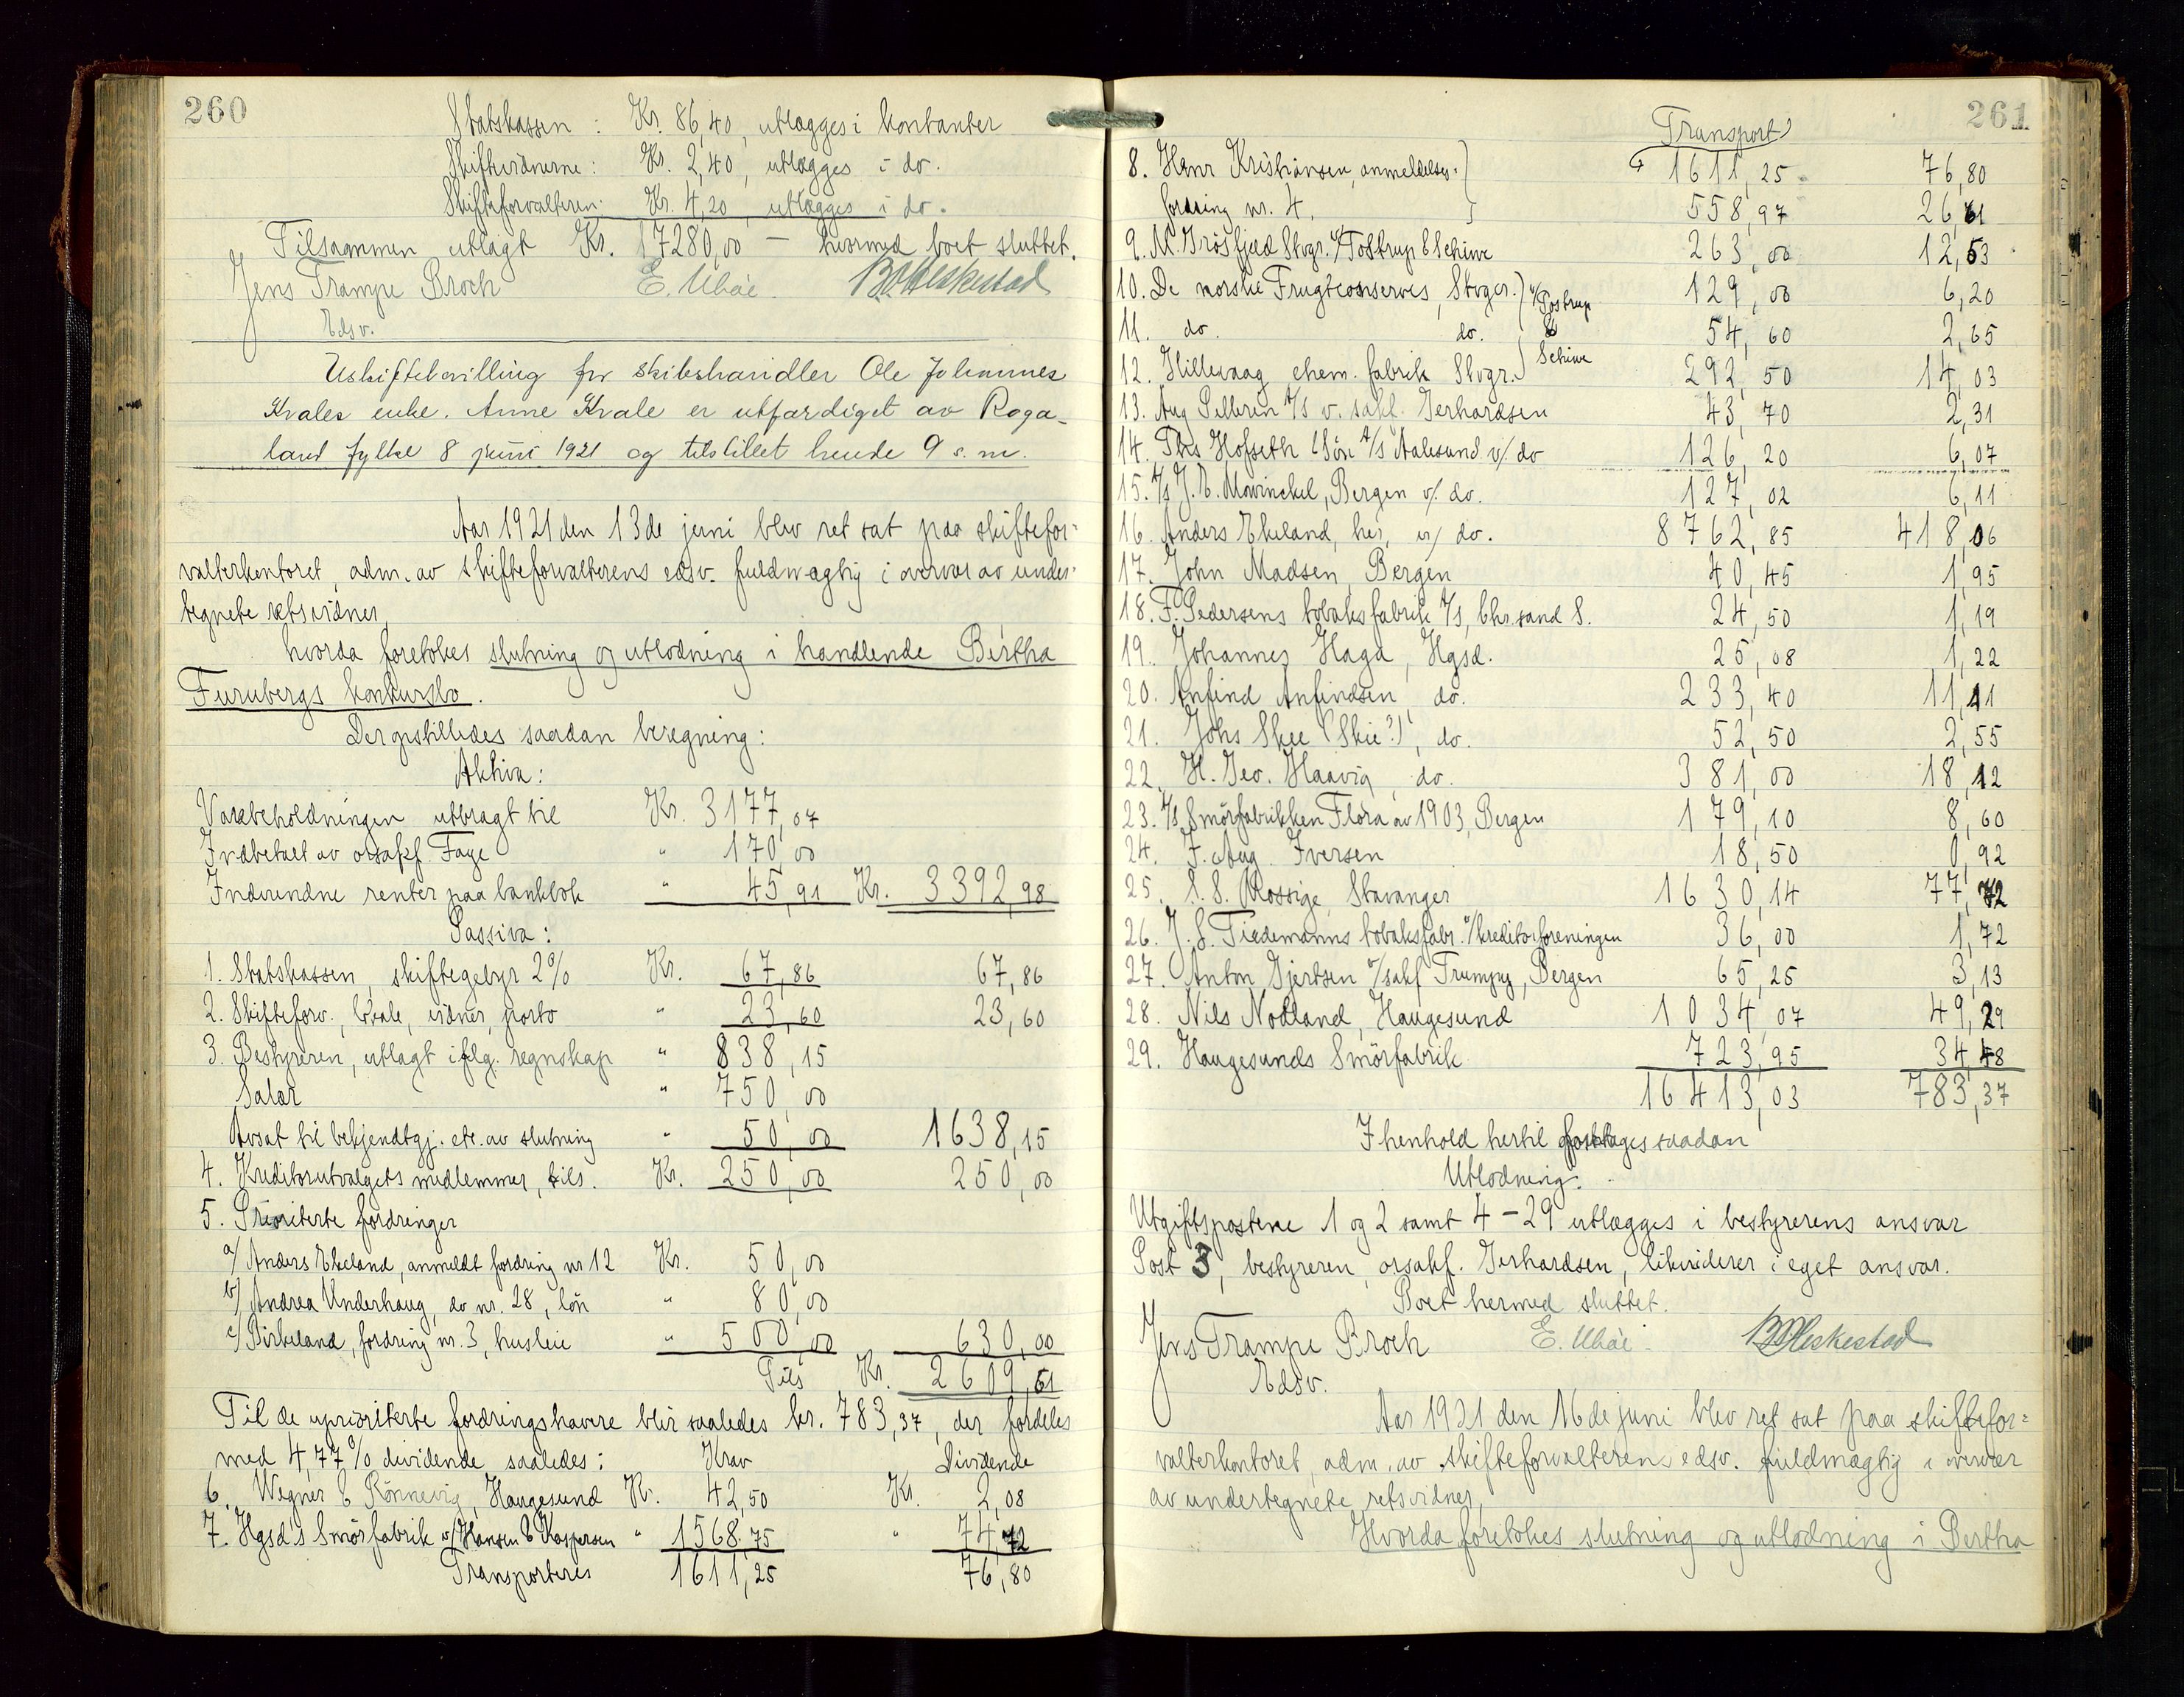 260
Statskassen : Kr. 86,40, utlægges i kontanter
Skiftevidnerne : Kr. 2,40, utlægges i do.
Skifteforvalteren: Kr. 4,20, utlægges i do.
Tilsammen utlagt Kr. 17280,00 — hvormed boet sluttet.
Jens Trampe Broch E. Ubøe B. Heskestad
Edsv.
Uskiftebevilling for skibshandler Ole Johannes
Kvales enke. Anne Kvale er utfærdiget av Roga-
land fylke 8 juni 1921 og tilstillet hende 9 s.m.
Aar 1921 den 13de juni blev ret sat paa skiftefor-
valterkontoret, adm. av skifteforvalterens edsv. fuldmægtig i overvær av under-
tegnete retsvidner,
hvorda foretokes slutning og utlodning i handlende Bertha
Furubergs konkursbo.
Der opstilledes saadan beregning :
Aktiva :
Varebeholdningen utbragt til Kr. 3177,07
Indbetalt av orsakf. Faye " 170,00
Indvundne renter paa bankbok " 45,91 Kr. 3392,98
Passiva :
1. Statskassen, skiftegebyr 2% Kr. 67,86 67,86
2. Skifteforv., lokale, vidner, porto " 23,60 23,60
3. Bestyreren, utlagt iflg. regnskap " 838,15
Salær " 750,00
Avsat til bekjendtgj. etc. av slutning " 50,00 1638,15
4. Kreditorutvalgets medlemmer, tils. Kr. 250,00 250,00
5. Prioriterte fordringer
a/ Anders Ekeland, anmeldt fordring nr 12 Kr. 50,00
b/ Andrea Underhaug, do nr. 28, løn " 80,00
c/ Birkeland, fordring nr. 3, husleie " 500,00 630,00
Tils Kr. 2609,61
Til de uprioriterte fordringshavere blir saaledes kr. 783,37, der fordeles
med 4,77% dividende saaledes : Krav Dividende
6. Wegner & Rönnevig, Haugesund Kr. 42,50 Kr. 2,08
7. Hgsd's Smörfabrik v/Hansen & Kaspersen " 1568,75 " 74,72
Transporteres 1611,25 76,80
261
Transport
1611,25 76,80
8. Henr Kristiansen, anmeldelses-
fordring nr. 4, 558,97 26,61
9. M. Grösfjeld Stvgr. v/Tostrup & Schiwe 263,00 12,53
10. De norske Frugtconserves, Stvger. v/Tostrup 129,00 6,20
11. do. do. & 54,60 2,65
Schiwe
12. Hillevaag chem. fabrik Stvgr. 292,50 14,03
13. Aug Pellerin A/S v. sakf. Gerhardsen 43,70 2,31
14. Ths Hofseth & Sön A/S Aalesund v/ do 126,20 6,07
15. A/S J. E. Mowinckel, Bergen v/. do. 127,02 6,11
16. Anders Ekeland, her, v/ do. 8762,85 418,06
17. John Madsen, Bergen 40,45 1,95
18. F. Pedersens tobaksfabrik A/S, Chr.sand S. 24,50 1,19
19. Johannes Haga, Hgsd. 25,08 1,22
20. Anfind Anfindsen, do. 233,40 11,11
21. Johs Skee (Skie?), do. 52,50 2,55
22. H. Geo. Haavig, do. 381,00 18,12
23. A/S Smörfabrikken Flora av 1903, Bergen 179,10 8,60
24. J. Aug. Iversen 18,50 0,92
25. S. S. Rossige, Stavanger 1630,14 77,72
26. J. L. Tiedemanns tobaksfabr. v/kreditorforeningen 36,00 1,72
27. Anton Gjertsen v/sakf Trumpy, Bergen 65,25 3,13
28. Nils Nodland, Haugesund 1034,07 49,29
29. Haugesunds Smörfabrik 723,95 34,48
16413,03 783,37
I henhold hertil foretages saadan
Utlodning.
Utgiftspostene 1 og 2 samt 4–29 utlægges i bestyrerens ansvar
Post 3, bestyreren, orsakf. Gerhardsen, likviderer i eget ansvar.
Boet hermed sluttet.
Jens Trampe Broch E. Ubøe B. Heskestad
Edsv.
Aar 1921 den 16de juni blev ret sat paa skiftefor-
valterkontoret, adm. av skifteforvalterens edsv. fuldmægtig i overvær
av undertegnete retsvidner,
Hvorda foretokes slutning og utlodning i Bertha